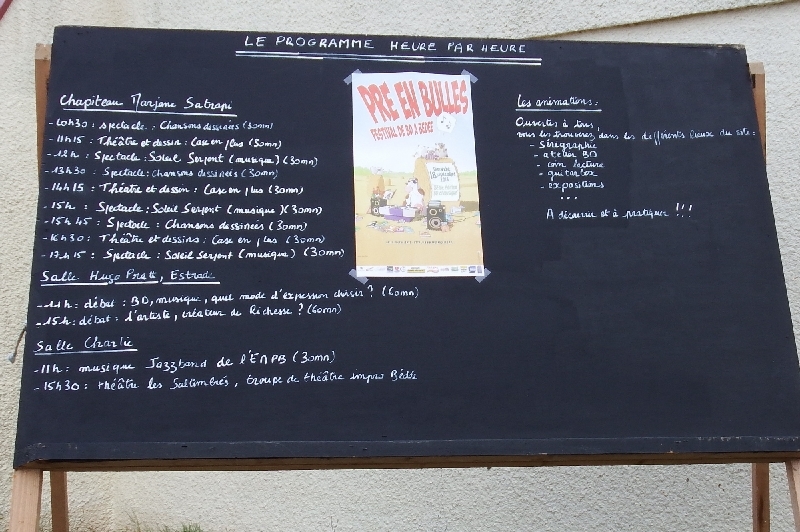 LE PROGRAMME HEURE PAR HEURE
Chapiteau Marjane Satrapi
- 10h30 : spectacle : Chansons dessinées (30mn)
- 11h15 : Théâtre et dessin : Case en plus (30mn)
- 12h : Spectacle : Soleil Serpent (musique) (30mn)
- 13h30 : Spectacle : chansons dessinées (30mn)
- 14h15 : Théâtre et dessin : Case en plus (30mn)
- 15h : Spectacle : Soleil Serpent (musique) (30mn)
- 15h45 : Spectacle : Chansons dessinées (30mn)
- 16h30 : Théâtre et dessins : Case en plus (30mn)
- 17h15 : Spectacle : Soleil Serpent (musique) (30mn)
Salle Hugo Pratt, Estrade
- 11h : débat : BD, musique, quel mode d'expression choisir ? (60mn)
- 15h : débat : l'artiste, créateur de Richesse ? (60mn)
Salle Charlie
- 11h : musique Jazzband de l'EMPB (30mn)
- 15h30 : théâtre les Saltimbrés, troupe de théâtre impro Bédée
PRE EN BULLES
FESTIVAL DE BD A BEDEE
Les animations :
Ouvertes à tous,
vous les trouverez dans les différents lieux du site :
- Sérigraphie
- atelier BD
- coin lecture
- guitarbox
- expositions
...
A découvrir et à pratiquer !!!